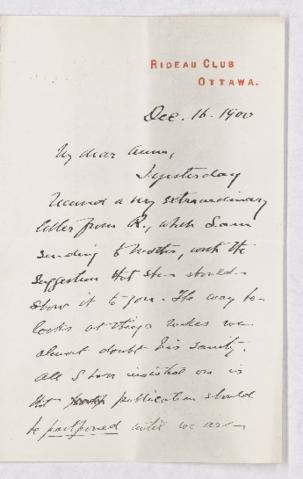 RIDEAU CLUB
OTTAWA.
Dec. 16. 1900
My dear Anna,
I yesterday
received a very extraordinary
letter from R., which I am
sending to mother, with the
suggestion that she should
show it to you. The way he
looks at things makes me
almost doubt his sanity.
All I have insisted on is
that publication should
be postponed until we are